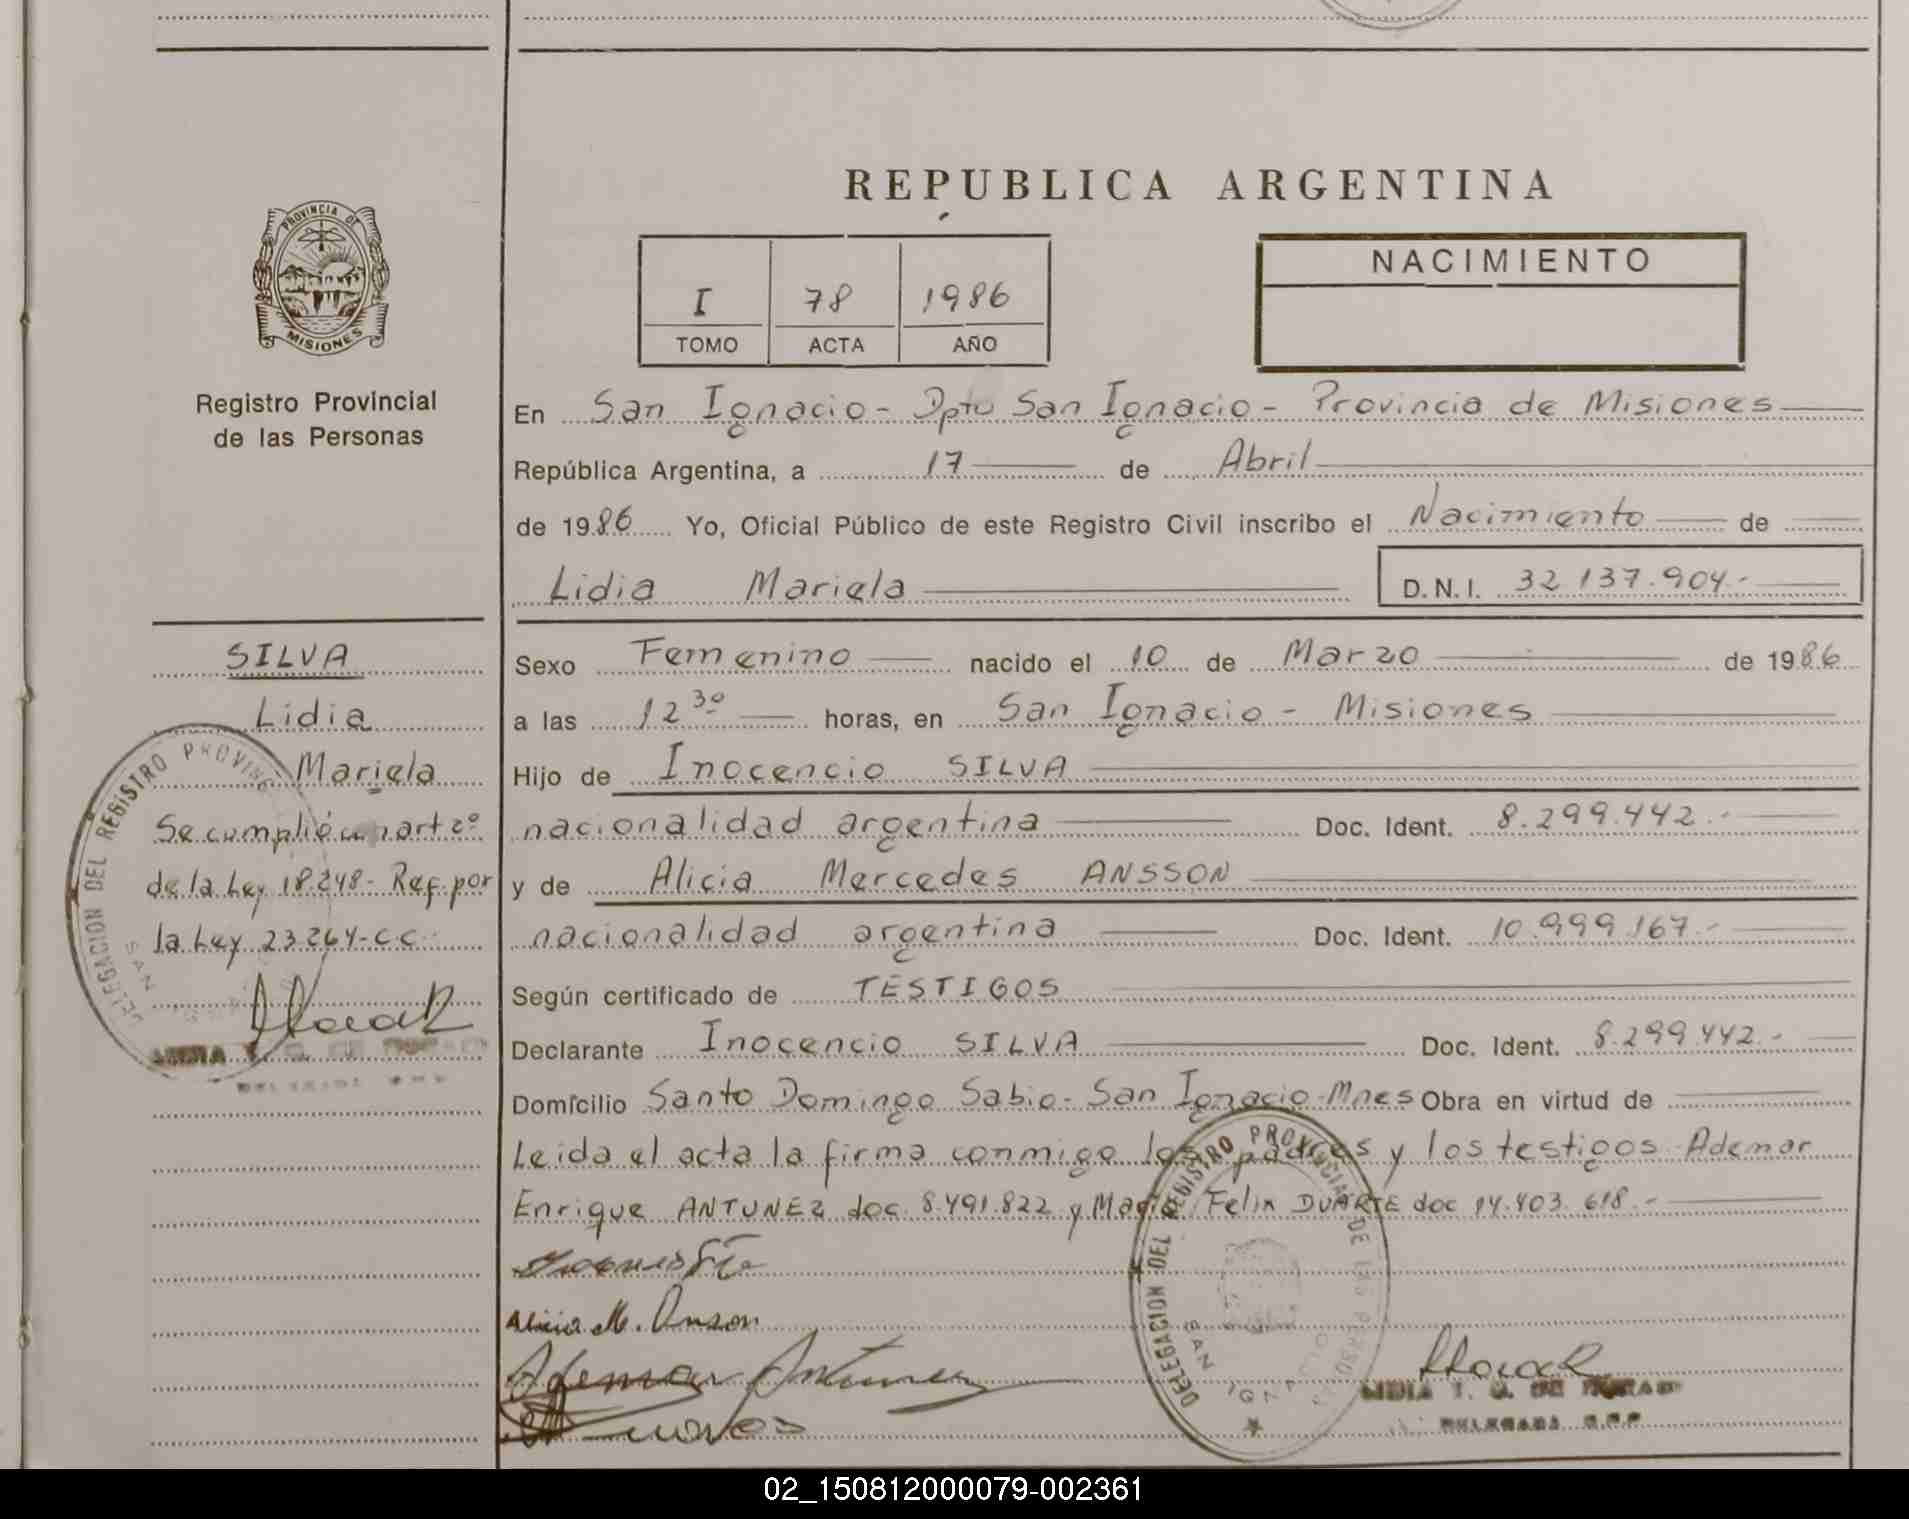 REPUBLICA ARGENTINA
PROVINCIA DE
MISIONES
Registro Provincial
de las Personas
I 78 1986
TOMO ACTA AÑO
NACIMIENTO
En San Ignacio - Dpto San Ignacio - Provincia de Misiones
República Argentina, a 17 de Abril
de 1986 Yo, Oficial Público de este Registro Civil inscribo el Nacimiento de
Lidia Mariela D.N.I. 32 137.904.-
SILVA
Lidia
Mariela
Se cumplió con art 2º
de la Ley 18.248- Ref. por
la Ley 23264-C.C.
DELEGACION DEL REGISTRO PROVINC
SAN
Sexo Femenino nacido el 10 de Marzo de 1986
a las 12 30 horas, en San Ignacio - Misiones
Hijo de Inocencio SILVA
nacionalidad argentina Doc. Ident. 8.299.442.-
y de Alicia Mercedes ANSSON
nacionalidad argentina Doc. Ident. 10.999.167.-
Según certificado de TESTIGOS
Declarante Inocencio SILVA Doc. Ident. 8.299.442.-
Domicilio Santo Domingo Sabio - San Ignacio - Mnes Obra en virtud de
Leida el acta la firma conmigo los padres y los testigos Ademar
Enrique ANTUNEZ doc. 8.491.822 y Mario Felix DUARTE doc 14.403.618.-
Alicia M. Anson
Ademar Antunez
DELEGACION DEL REGISTRO PROVINCIAL DE LAS PERSONAS
SAN IGNACIO
DELEGADA R.P.P
02_150812000079-002361